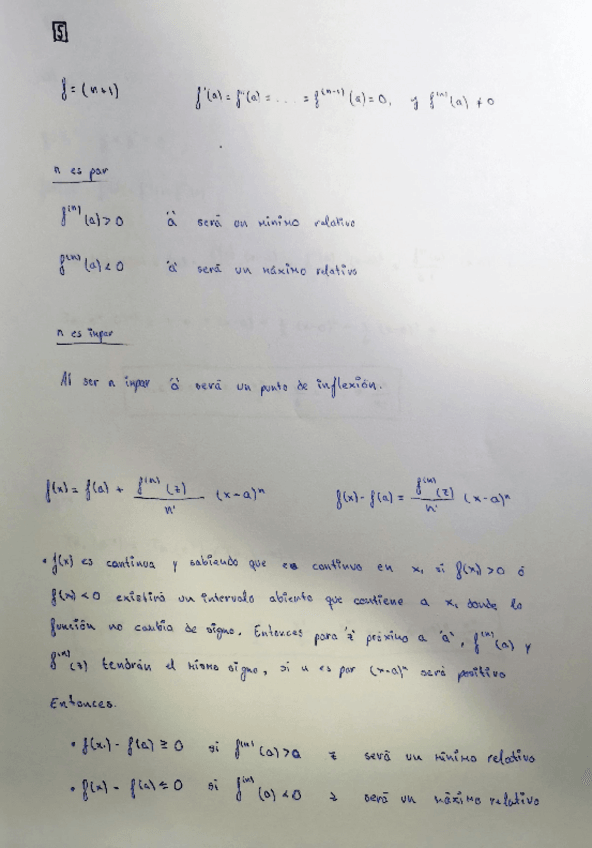 5
f = (n+1) f'(a) = f''(a) = .... = f^(n-1) (a) = 0, y f^(n) (a) ≠ 0
n es par
f^(n) (a) > 0 'a' será un mínimo relativo
f^(n) (a) < 0 'a' será un máximo relativo
n es inpar
Al ser n inpar 'a' será un punto de inflexión.
f(x) = f(a) + f^(n) (z) / n! (x-a)^n f(x) - f(a) = f^(n) (z) / n! (x-a)^n
• f(x) es continua y sabiendo que es continuo en x, si f(x) > 0 ó
f(x) < 0 existirá un intervalo abierto que contiene a x, donde la
función no cambia de signo. Entonces para 'z' próximo a 'a', f^(n) (a) y
f^(n) (z) tendrán el mismo signo, si n es par (x-a)^n será positivo
Entonces.
• f(x) - f(a) ≥ 0 si f^(n) (a) > 0 z será un mínimo relativo
• f(x) - f(a) ≤ 0 si f^(n) (a) < 0 z será un máximo relativo